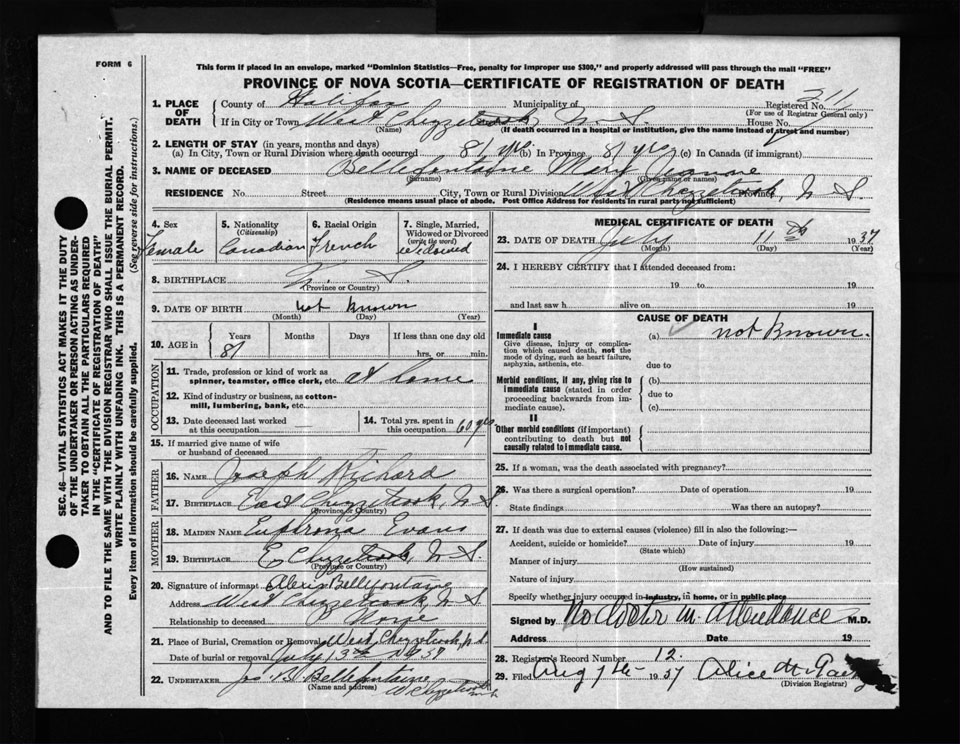 FORM 6
This form if placed in an envelope, marked "Dominion Statistics—Free, penalty for improper use $300," and properly addressed will pass through the mail "FREE"
PROVINCE OF NOVA SCOTIA—CERTIFICATE OF REGISTRATION OF DEATH
1. PLACE OF DEATH County of Halifax Municipality of Registered No. 311
(For use of Registrar General only)
If in City or Town West Chezzetcook, N. S. House No.
(Name) (If death occurred in a hospital or institution, give the name instead of street and number)
2. LENGTH OF STAY (in years, months and days)
(a) In City, Town or Rural Division where death occurred 81 yrs. (b) In Province 81 yrs (c) In Canada (if immigrant)
3. NAME OF DECEASED Bellefontaine Mary
(Surname) (Given name or names)
RESIDENCE No. Street City, Town or Rural Division West Chezzetcook, N S. Province
(Residence means usual place of abode. Post Office Address for residents in rural parts not sufficient)
SEC. 46—VITAL STATISTICS ACT MAKES IT THE DUTY
OF THE UNDERTAKER OR PERSON ACTING AS UNDER-
TAKER TO OBTAIN ALL THE PARTICULARS REQUIRED
IN THE "CERTIFICATE OF REGISTRATION OF DEATH"
AND TO FILE THE SAME WITH THE DIVISION REGISTRAR WHO SHALL ISSUE THE BURIAL PERMIT.
WRITE PLAINLY WITH UNFADING INK. THIS IS A PERMANENT RECORD.
Every item of information should be carefully supplied. (See reverse side for instructions.)
4. Sex 5. Nationality 6. Racial Origin 7. Single, Married,
(Citizenship) Widowed or Divorced
(write the word)
Female Canadian French widowed
8. BIRTHPLACE N. S.
(Province or Country)
9. DATE OF BIRTH not known
(Month) (Day) (Year)
10. AGE in Years Months Days If less than one day old
81 hrs. or min.
OCCUPATION
11. Trade, profession or kind of work as
spinner, teamster, office clerk, etc. at home
12. Kind of industry or business, as cotton-
mill, lumbering, bank, etc.
13. Date deceased last worked
at this occupation
14. Total yrs. spent in
this occupation 60 yrs
15. If married give name of wife
or husband of deceased
FATHER
16. NAME Joseph Richard
17. BIRTHPLACE East Chezzetcook, N S
(Province or Country)
MOTHER
18. MAIDEN NAME Evans
19. BIRTHPLACE E Chezzetcook, N S.
(Province or Country)
20. Signature of informant Alexis Bellefontaine
Address West Chezzetcook, N S
Relationship to deceased
21. Place of Burial, Cremation or Removal West Chezzetcook, N.S.
Date of burial or removal July 13th 1937
22. UNDERTAKER Bellefontaine
(Name and address) W Chezzetcook
MEDICAL CERTIFICATE OF DEATH
23. DATE OF DEATH July 11th 1937
(Month) (Day) (Year)
24. I HEREBY CERTIFY that I attended deceased from:
19 to 19
and last saw h alive on 19
CAUSE OF DEATH
I
Immediate cause (a) not known.
Give disease, injury or complica-
tion which caused death, not the
mode of dying, such as heart failure,
asphyxia, asthenia, etc. due to
Morbid conditions, if any, giving rise to (b)
immediate cause (stated in order due to
proceeding backwards from im-
mediate cause). (c)
II
Other morbid conditions (if important)
contributing to death but not
causally related to immediate cause.
25. If a woman, was the death associated with pregnancy?
26. Was there a surgical operation? Date of operation 19
State findings Was there an autopsy?
27. If death was due to external causes (violence) fill in also the following:—
Accident, suicide or homicide? Date of injury 19
(State which)
Manner of injury
(How sustained)
Nature of injury
Specify whether injury occured in industry, in home, or in public place
Signed by No doctor in attendance M.D.
Address Date 19
28. Registrar's Record Number 12.
29. Filed Aug 7th 1937 Alice
(Division Registrar)